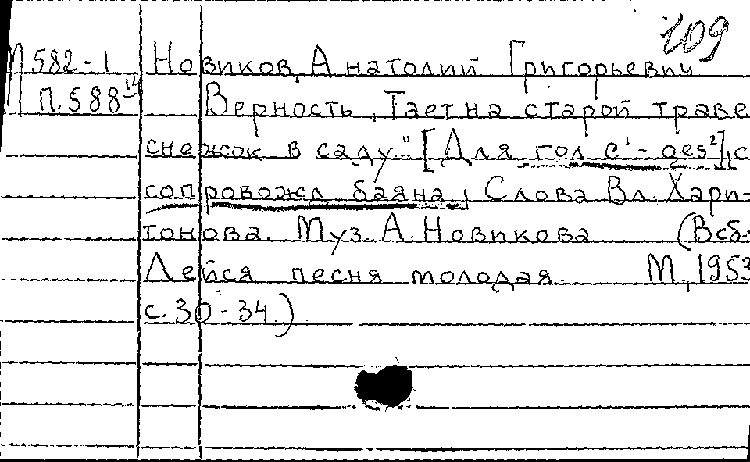 109
П582-1 Новиков, Анатолий Григорьевич
П.588 Верность „Тает на старой траве
снежок в саду" [Для гол c¹-ges²] с
сопровожд баяна, Слова Вл. Хари-
тонова. Муз. А Новикова (В сб.
Лейся песня молодая М, 1953
с. 30-34.)